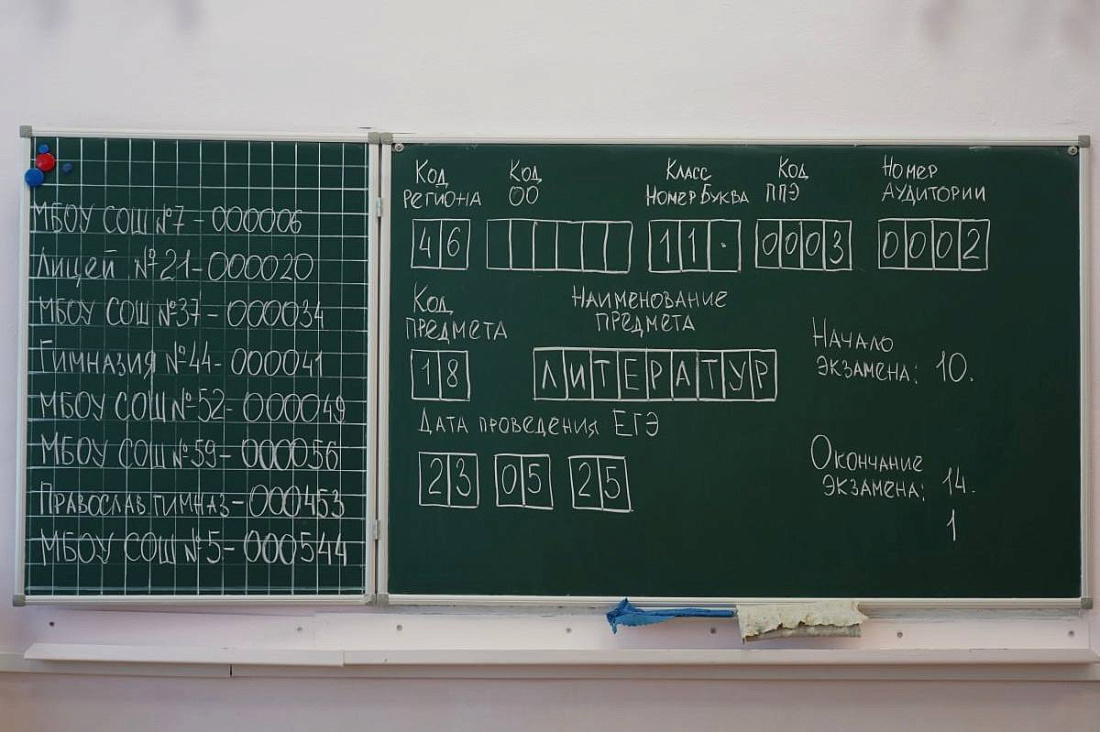 МБОУ СОШ №7 - 000006
Лицей №21 - 000020
МБОУ СОШ №37 - 000034
Гимназия №44 - 000041
МБОУ СОШ №52 - 000049
МБОУ СОШ №59 - 000056
Православ гимназ - 000453
МБОУ СОШ №5 - 000544
Код региона
Код ОО
Класс
Номер Буква
Код ППЭ
Номер аудитории
46
11.
0003
0002
Код предмета
Наименование предмета
18
ЛИТЕРАТУР
Начало экзамена: 10.
Дата проведения ЕГЭ
23 05 25
Окончание экзамена: 14.
1